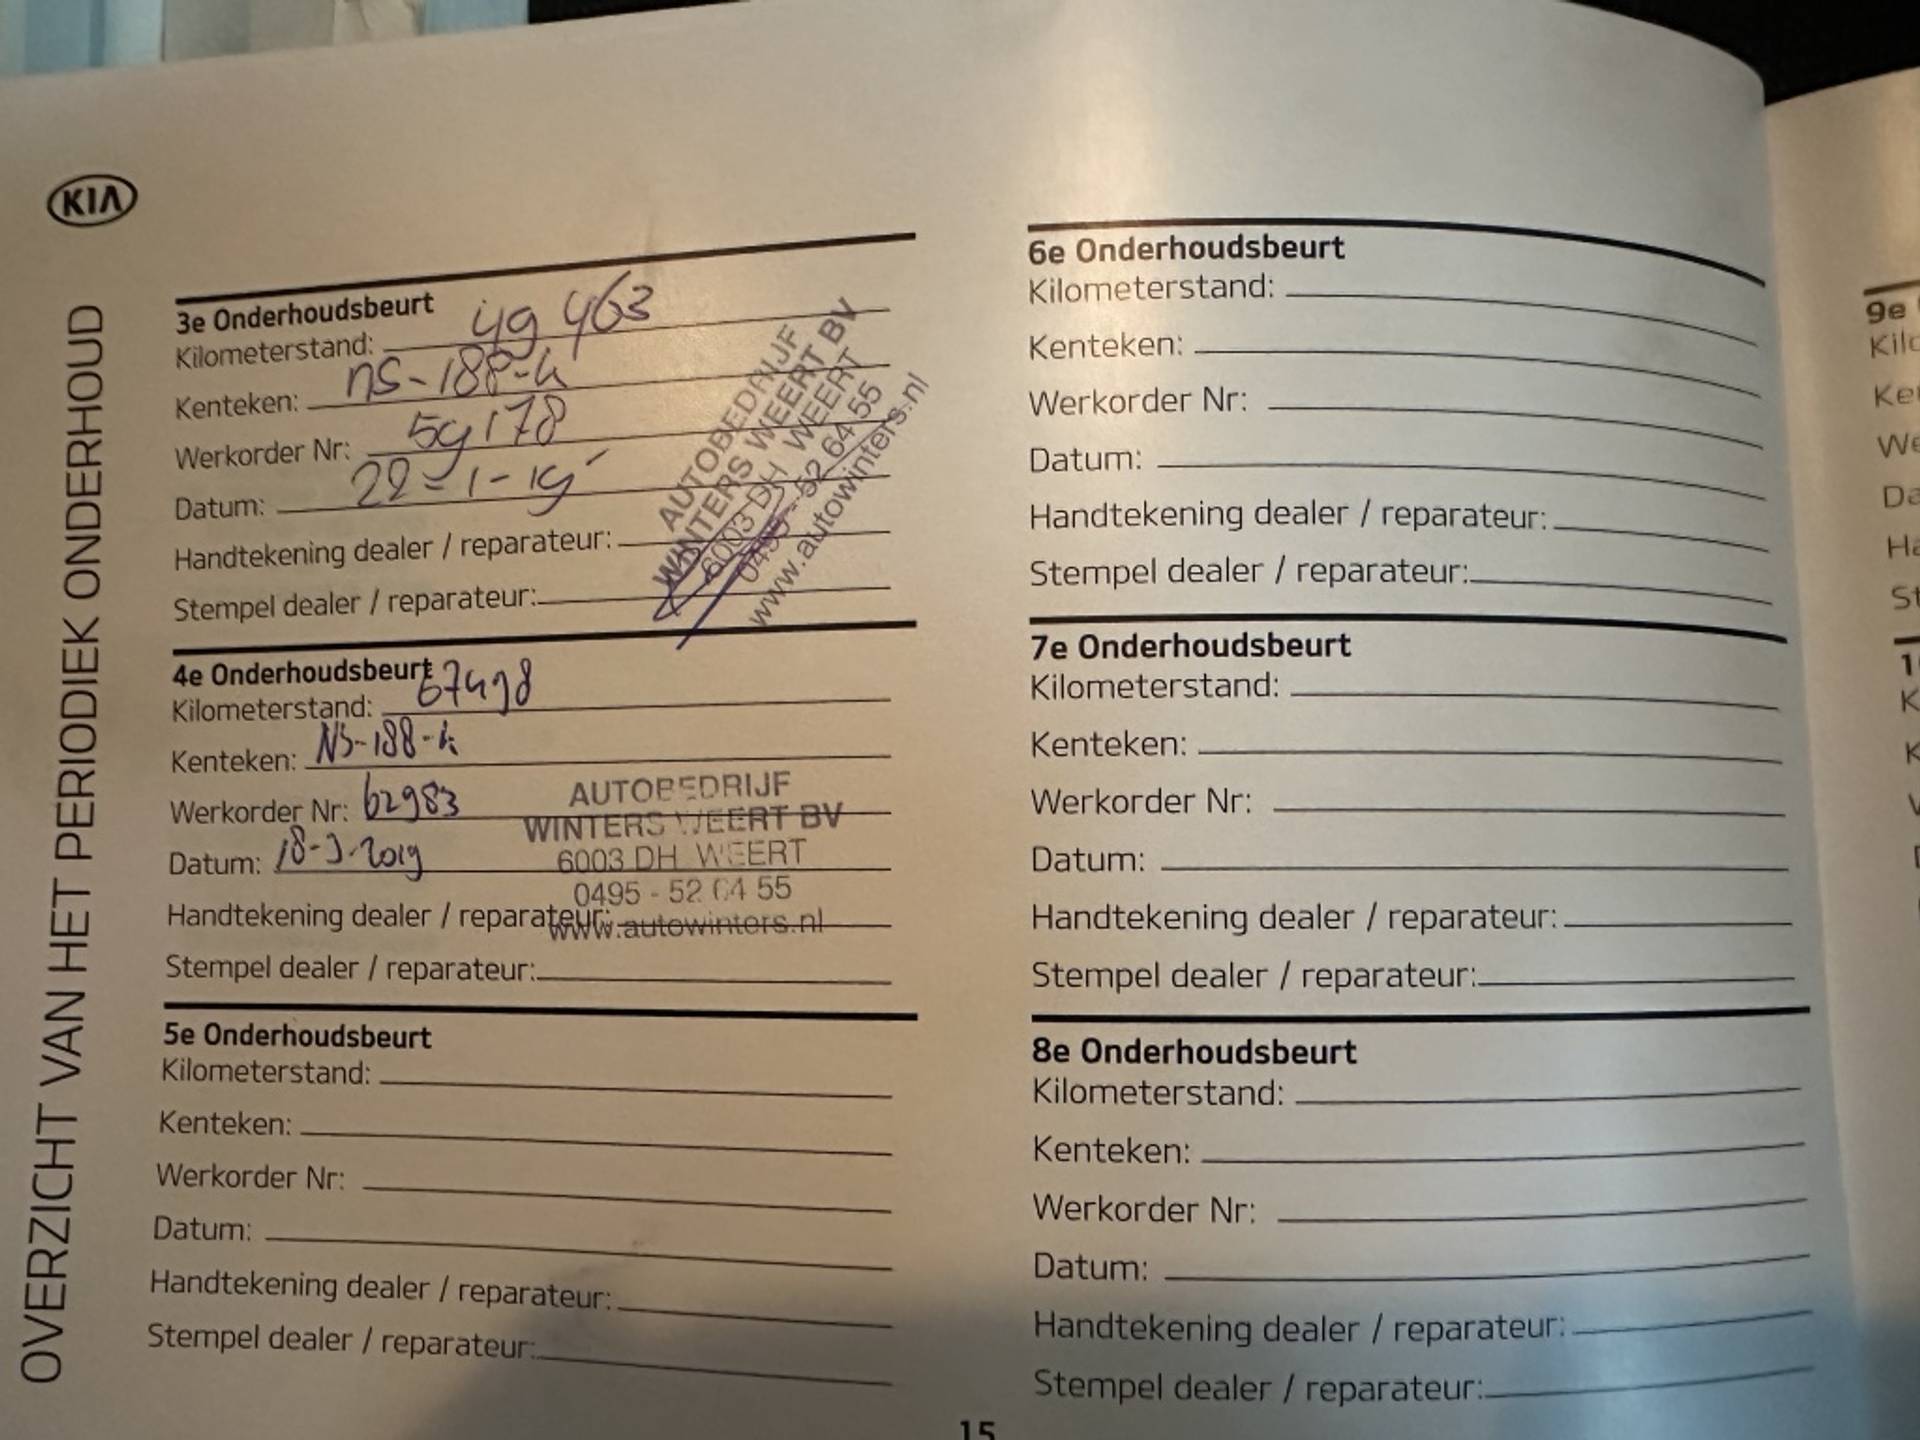 KIA
OVERZICHT VAN HET PERIODIEK ONDERHOUD
3e Onderhoudsbeurt
Kilometerstand: 49 463
Kenteken: NS-188-k
Werkorder Nr: 59178
Datum: 22-1-19
Handtekening dealer / reparateur:
Stempel dealer / reparateur:
AUTOBEDRIJF
WINTERS WEERT BV
6003 DH WEERT
0495 - 52 64 55
www.autowinters.nl
4e Onderhoudsbeurt
Kilometerstand: 67498
Kenteken: NS-188-k
Werkorder Nr: 62983
Datum: 18-9-2019
Handtekening dealer / reparateur:
Stempel dealer / reparateur:
AUTOBEDRIJF
WINTERS WEERT BV
6003 DH WEERT
0495 - 52 64 55
www.autowinters.nl
5e Onderhoudsbeurt
Kilometerstand:
Kenteken:
Werkorder Nr:
Datum:
Handtekening dealer / reparateur:
Stempel dealer / reparateur:
6e Onderhoudsbeurt
Kilometerstand:
Kenteken:
Werkorder Nr:
Datum:
Handtekening dealer / reparateur:
Stempel dealer / reparateur:
7e Onderhoudsbeurt
Kilometerstand:
Kenteken:
Werkorder Nr:
Datum:
Handtekening dealer / reparateur:
Stempel dealer / reparateur:
8e Onderhoudsbeurt
Kilometerstand:
Kenteken:
Werkorder Nr:
Datum:
Handtekening dealer / reparateur:
Stempel dealer / reparateur:
15
9e